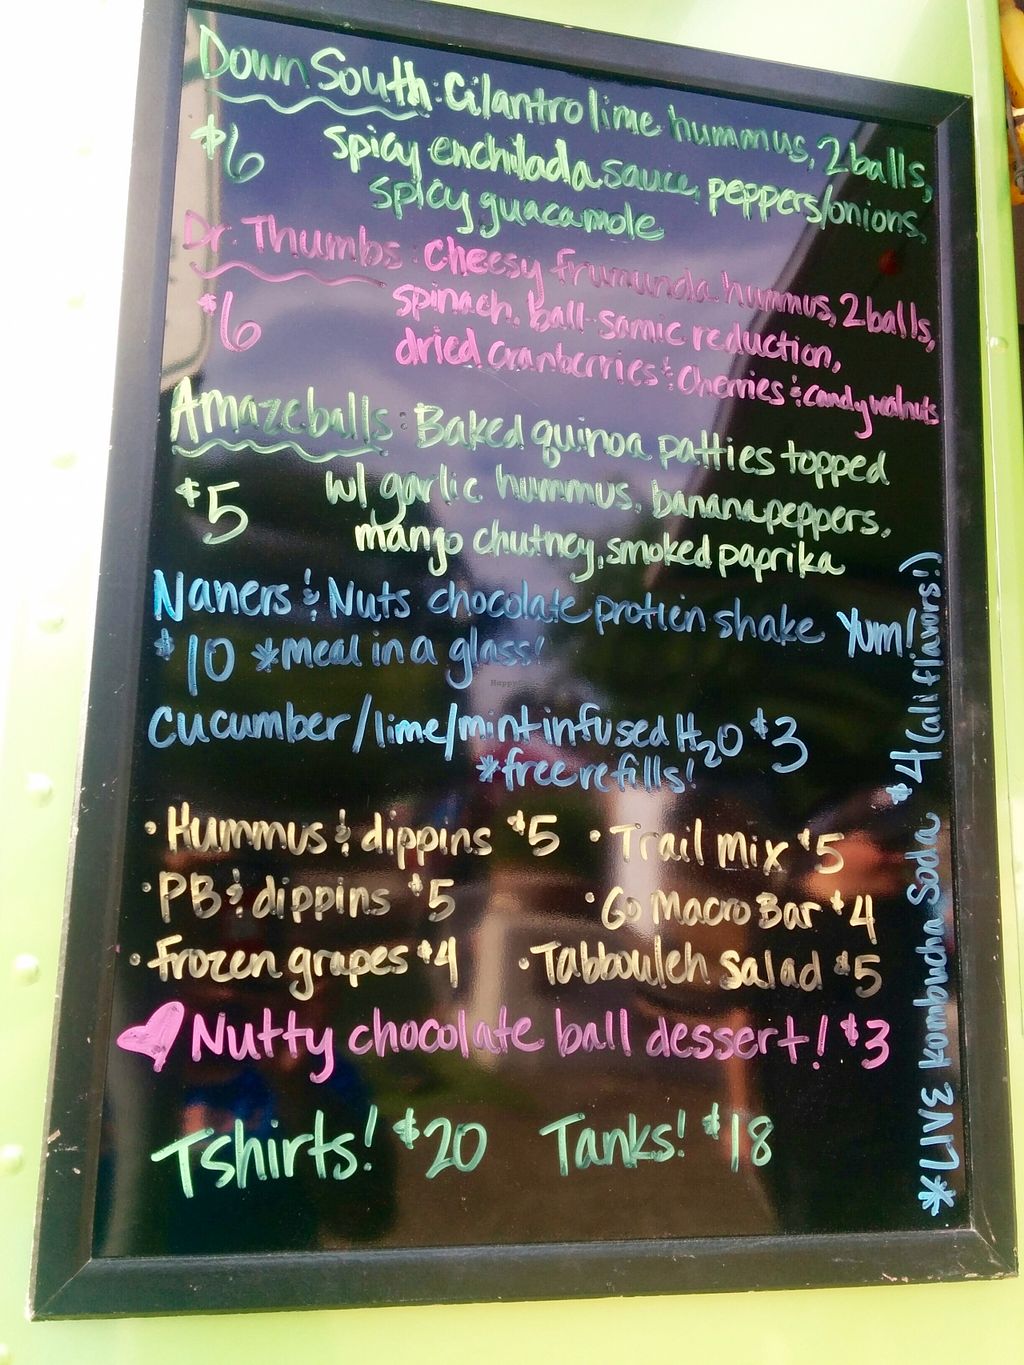 Down South: Cilantro lime hummus, 2 balls,
$6 spicy enchilada sauce, peppers/onions,
spicy guacamole
Dr. Thumbs: Cheesy frumunda hummus, 2 balls,
$6 spinach, ball-samic reduction,
dried cranberries & cherries & candy walnuts
Amazeballs: Baked quinoa patties topped
$5 w/ garlic hummus, banana peppers,
mango chutney, smoked paprika
Naners & Nuts chocolate protien shake Yum!
$10 *meal in a glass!
Cucumber/lime/mint infused H2O $3
*free refills!
• Hummus & dippins $5 • Trail Mix $5
• PB & dippins $5 • Go Macro Bar $4
• Frozen grapes $4 • Tabbouleh Salad $5
Nutty chocolate ball dessert! $3
Tshirts! $20 Tanks! $18
*LIVE Kombucha Soda $4 (all flavors!)